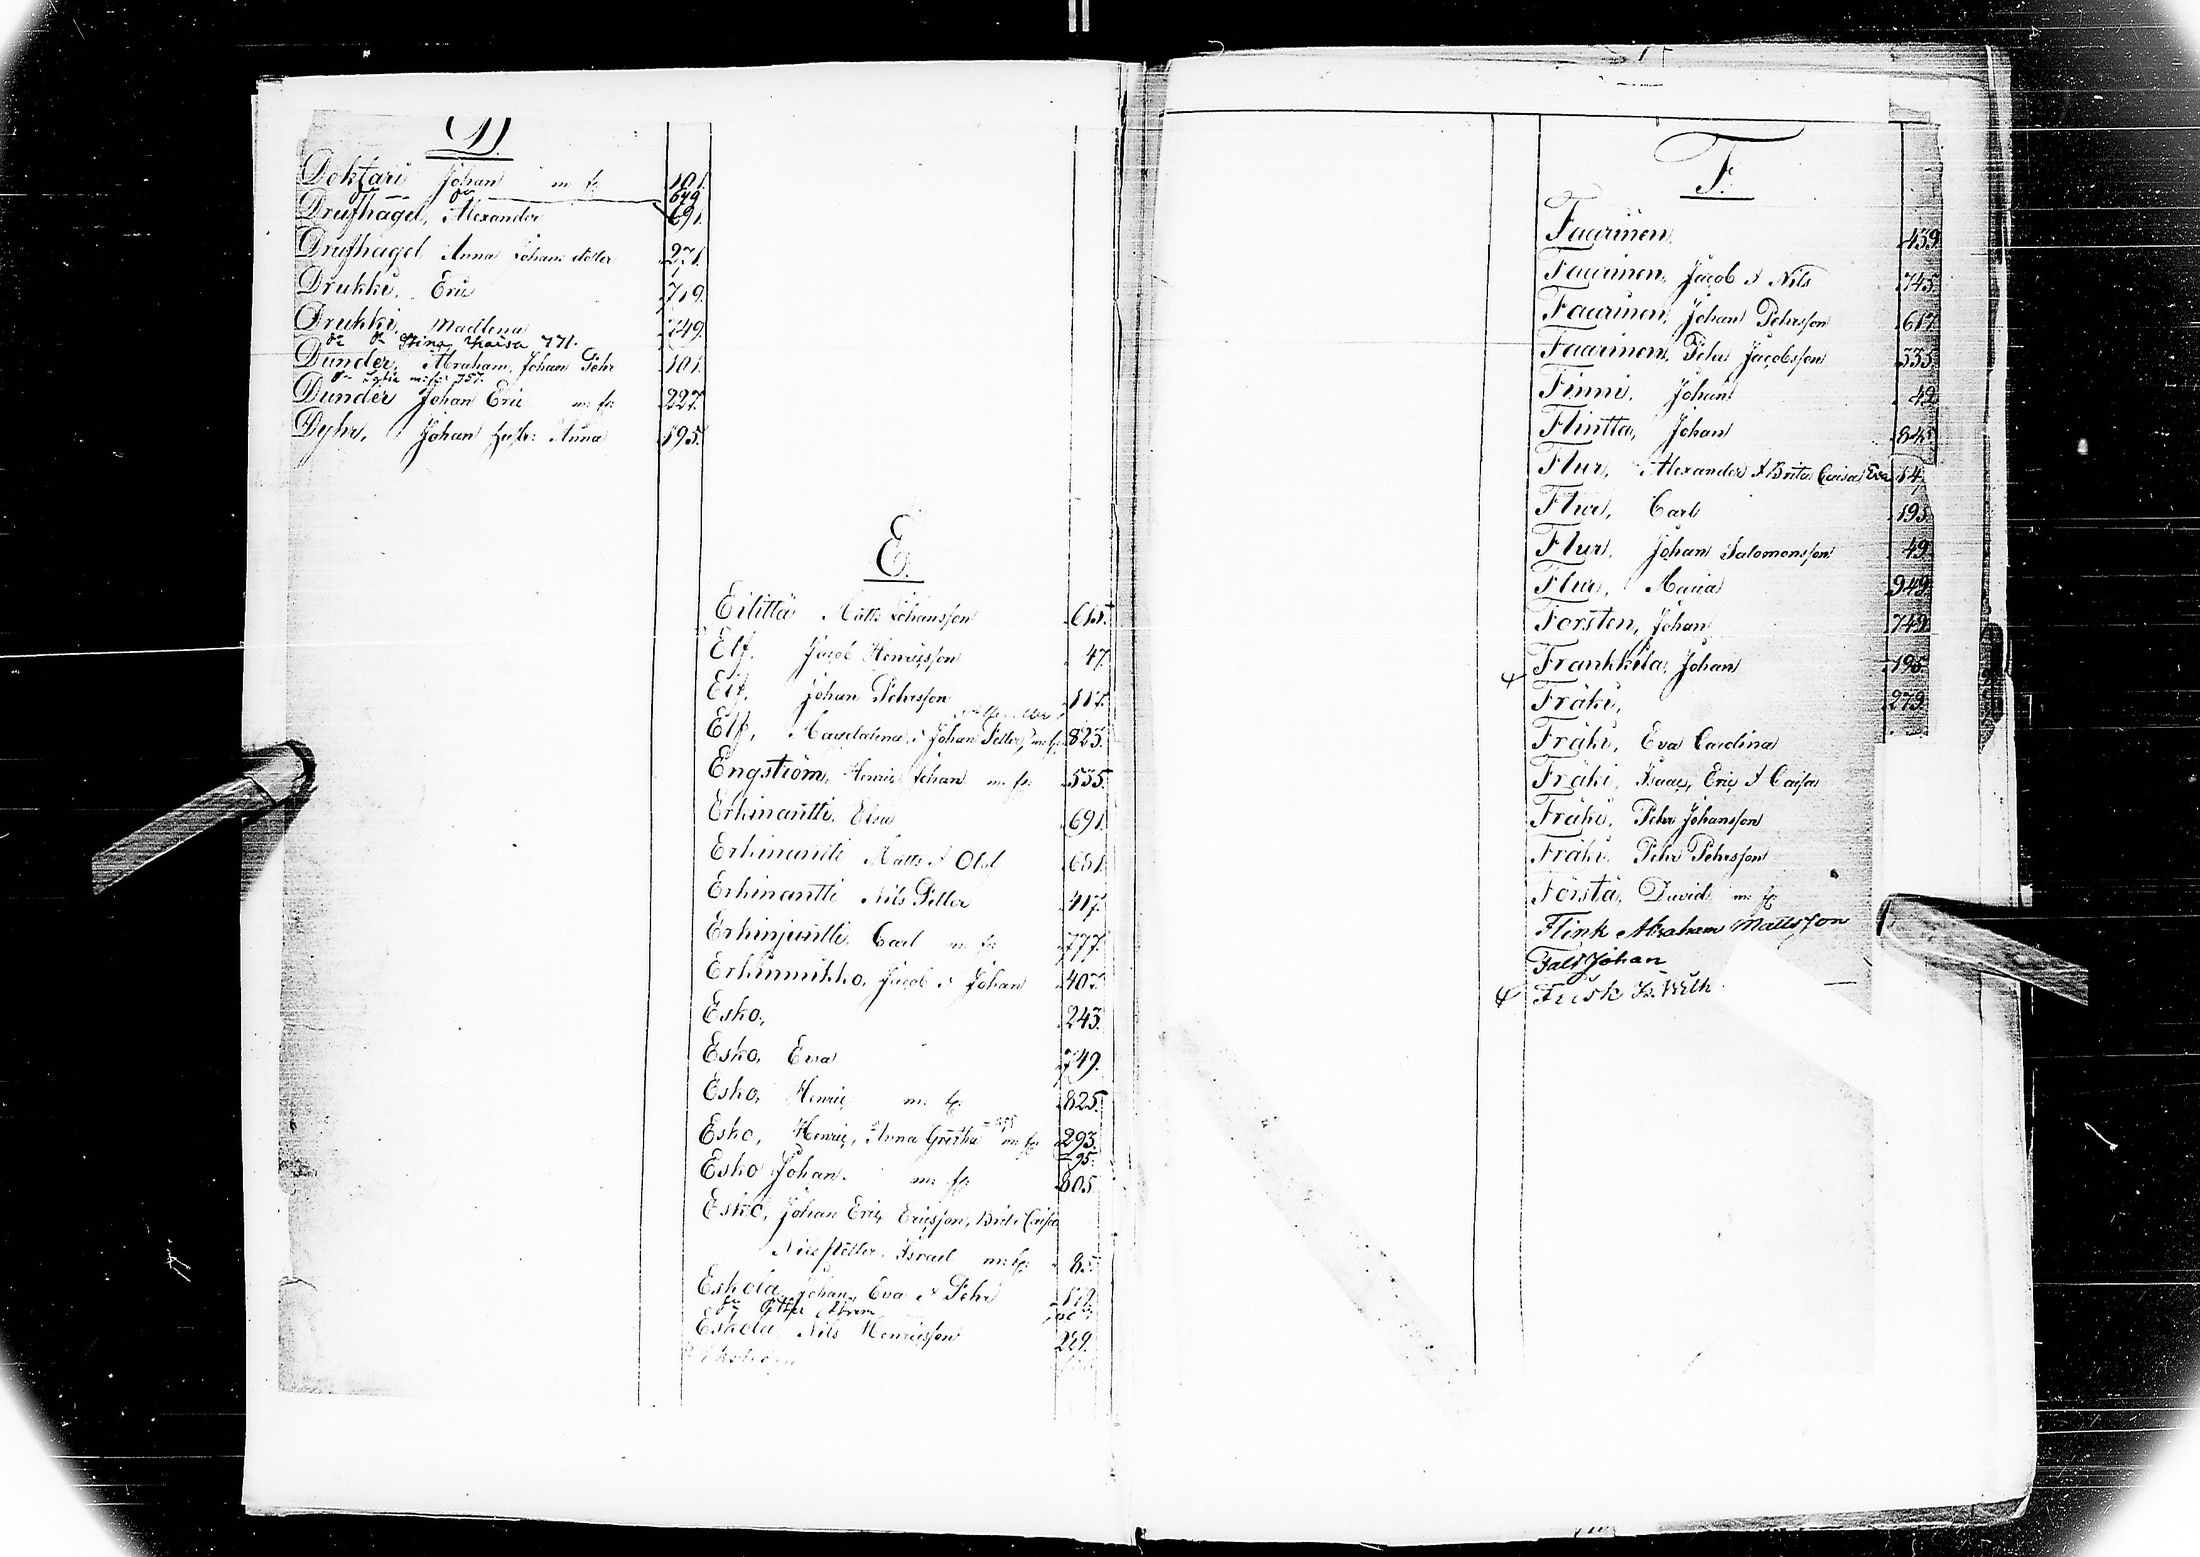 D.
Doktari Johan m: fr 101.
Do — Do 649
Drufhagel, Alexander 691.
Drufhagel Anna Johans dotter 271.
Drukki, Eric 719.
Drukki, Madlena 749.
Do Do Stina Kaisa 771.
Dunder, Abraham, Johan Pehr 101.
Do m: fr: 757.
Dunder Johan Eric m: fr: 227.
Dyhr, Johan hustr: Anna 195.
E.
Eilittä Matts Johansson 615.
Elf, Jacob Henricsson 47.
Elf, Johan Pehrsson 117.
Elf, Magdalena, & Johan Petter, m: fr: 823.
Engström, Henric Johan m: fr: 555.
Erkinantti, Elsa 691.
Erkinantti Matts & Olof 651.
Erkinantti Nils Petter 417.
Erkinjuntti, Carl m: fr: 777.
Erkinmikko, Jacob & Johan 407.
Esko, 243.
Esko, Eva 749.
Esko, Henric m: fr: 825.
Esko, Henric, Anna Gretha m: fr: 293.
95.
Esko Johan m: fr: 805.
Esko, Johan Eric Ericsson, Brita Caisa
Nils Petter, Israel m: fr: 85.
Eskola, Johan, Eva & Pehr
Do
Eskola Nils Henricsson 229.
F.
Faarinen, 439.
Faarinen, Jacob & Nils 745.
Faarinen, Johan Pehrsson 617.
Faarinen, Pehr Jacobsson 335.
Finni, Johan 49.
Flintta, Johan 845.
Flur, Alexander & Brita Caisa Eva 14
Flur, Carl 195.
Flur, Johan Salomonsson 49.
Flur, Maria 949.
Forsten, Johan 749.
Frankkila, Johan 195.
Fräki, 279.
Fräki, Eva Carolina
Fräki, Isaac, Eric & Caisa
Fräki, Pehr Johansson
Fräki, Pehr Pehrsson
Första, David m: fr:
Flink Abraham Mattsson
Falt Johan
Frisk Is. Wilh.